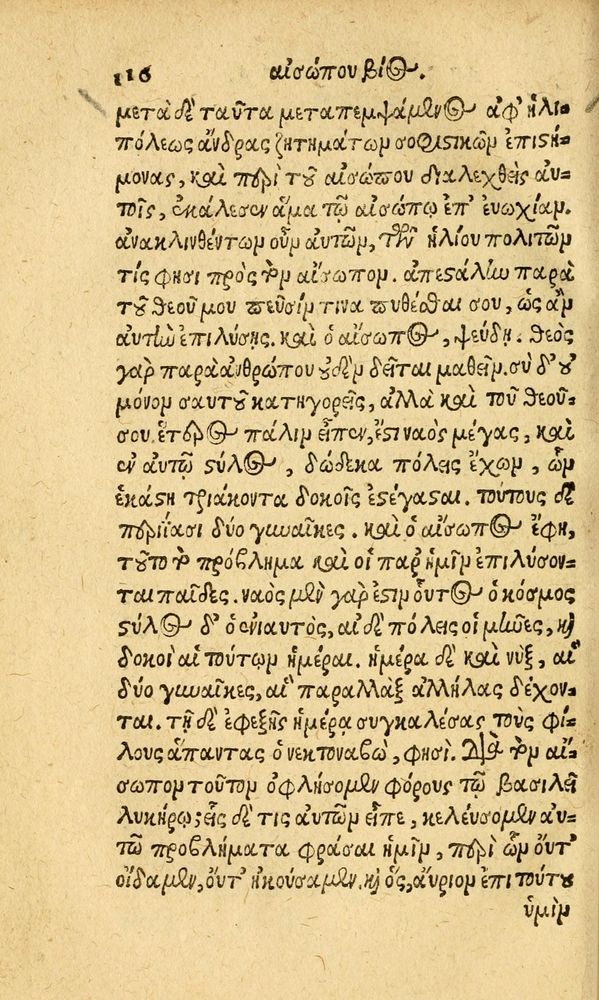 116 αἰσώπου βίος.
μετὰ δὲ ταῦτα μεταπεμψάμενος ἀφ' ἡλι-
πόλεως ἄνδρας ζητημάτων σοφιστικῶν ἐπιστή-
μονας, καὶ περὶ τοῦ αἰσώπου διαλεχθεὶς αὐ-
τοῖς, ἐκάλεσεν ἅμα τῷ αἰσώπῳ ἐπ' ἐυωχίαν.
ἀνακλινθέντων οὖν αὐτῶν, τῶν ἡλίου πολιτῶν
τίς φησι πρὸς τὸν αἴσωπον. ἀπεστάλην παρὰ
τοῦ θεοῦ μου πεῦσίν τινα πυθέσθαι σου, ὡς ἂν
αὐτὴν ἐπιλύσῃς. καὶ ὁ αἴσωπος, ψεύδῃ. θεὸς
γὰρ παρὰ ἀνθρώπου οὐδὲν δεῖται μαθεῖν. σὺ δ' οὐ
μόνον σαυτοῦ κατηγορεῖς, ἀλλὰ καὶ τοῦ θεοῦ-
σου. ἕτερος πάλιν εἶπεν, ἔστι ναὸς μέγας, καὶ
ἐν αὐτῷ στύλος, δώδεκα πόλεις ἔχων, ὧν
ἑκάστη τριάκοντα δοκοῖς ἐστέγασται. τούτους δὲ
περιΐασι δύο γυναῖκες. καὶ ὁ αἴσωπος ἔφη,
τοῦτο τὸ πρόβλημα καὶ οἱ παρ' ἡμῖν ἐπιλύσον-
ται παῖδες. ναὸς μὲν γάρ ἐστιν οὗτος ὁ κόσμος
στύλος δ' ὁ ἐνιαυτὸς, αἱ δὲ πόλεις οἱ μῆνες, καὶ
δοκοὶ αἱ τούτων ἡμέραι. ἡμέρα δὲ καὶ νὺξ, αἱ
δύο γυναῖκες, αἱ παραλλὰξ ἀλλήλας δέχον-
ται. τῇ δὲ ἐφεξῆς ἡμέρᾳ συγκαλέσας τοὺς φί-
λους ἅπαντας ὁ νεκτοναβὼ, φησὶ. Διὰ τὸν αἴ-
σωπον τοῦτον ὀφλήσομεν φόρους τῷ βασιλεῖ
λυκήρῳ; εἷς δέ τις αὐτῶν εἶπε, κελεύσομεν αὐ-
τῷ προβλήματα φράσαι ἡμῖν, περὶ ὧν οὔτ'
οἴδαμεν, οὔτ' ἠκούσαμεν. καὶ ὃς, αὔριον ἐπὶ τούτου
ὑμῖν